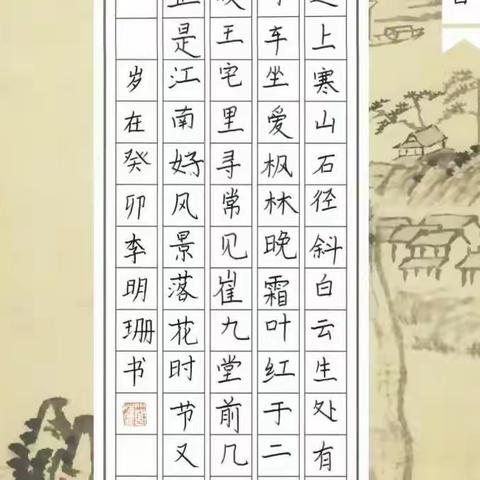 上寒山石径斜白云生处有
车坐爱枫林晚霜叶红于二
王宅里寻常见崔九堂前几
是江南好风景落花时节又
岁在癸卯李明珊书